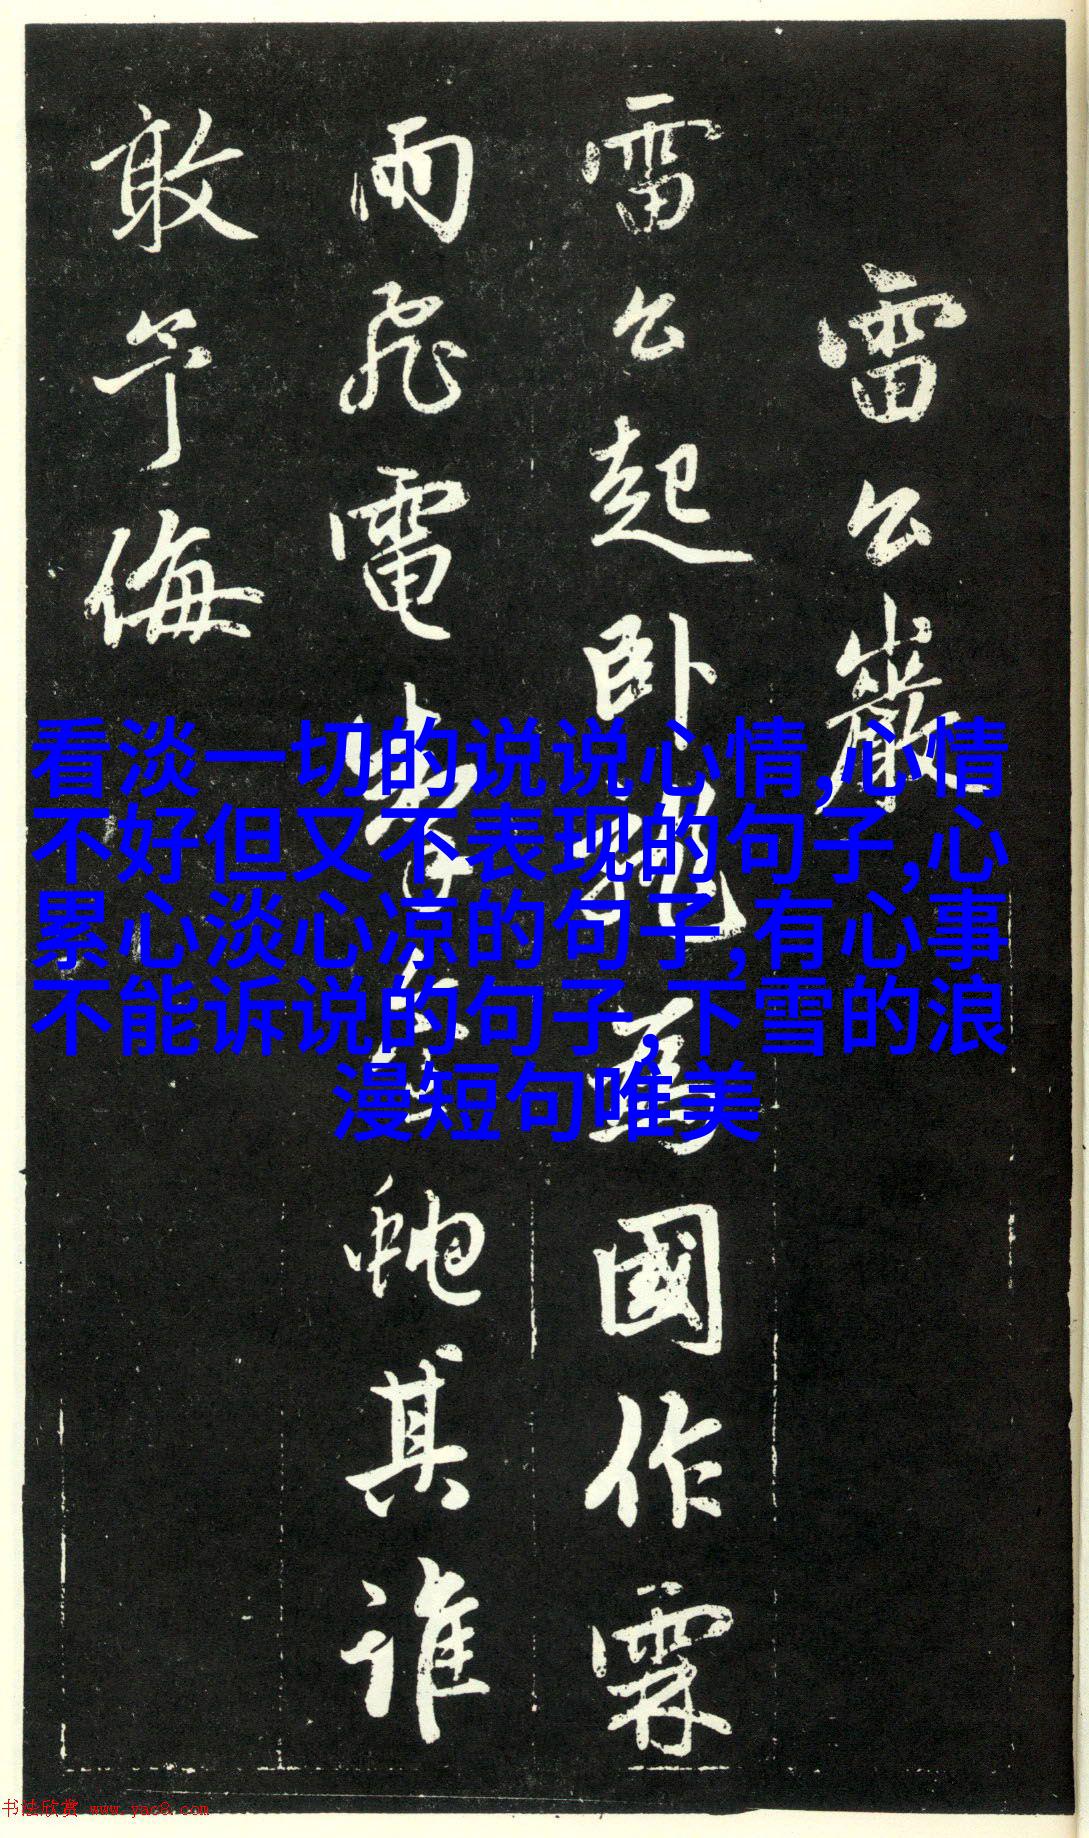 雷公巖
雷公起卧龍為國作霖
雨飛電虵其誰
敢予侮
看淡一切的说说心情,心情
不好但又不表现的句子,心
累心淡心凉的句子,有心事
不能诉说的句子,下雪的浪
漫短句唯美
书法欣赏 www.yac8.com